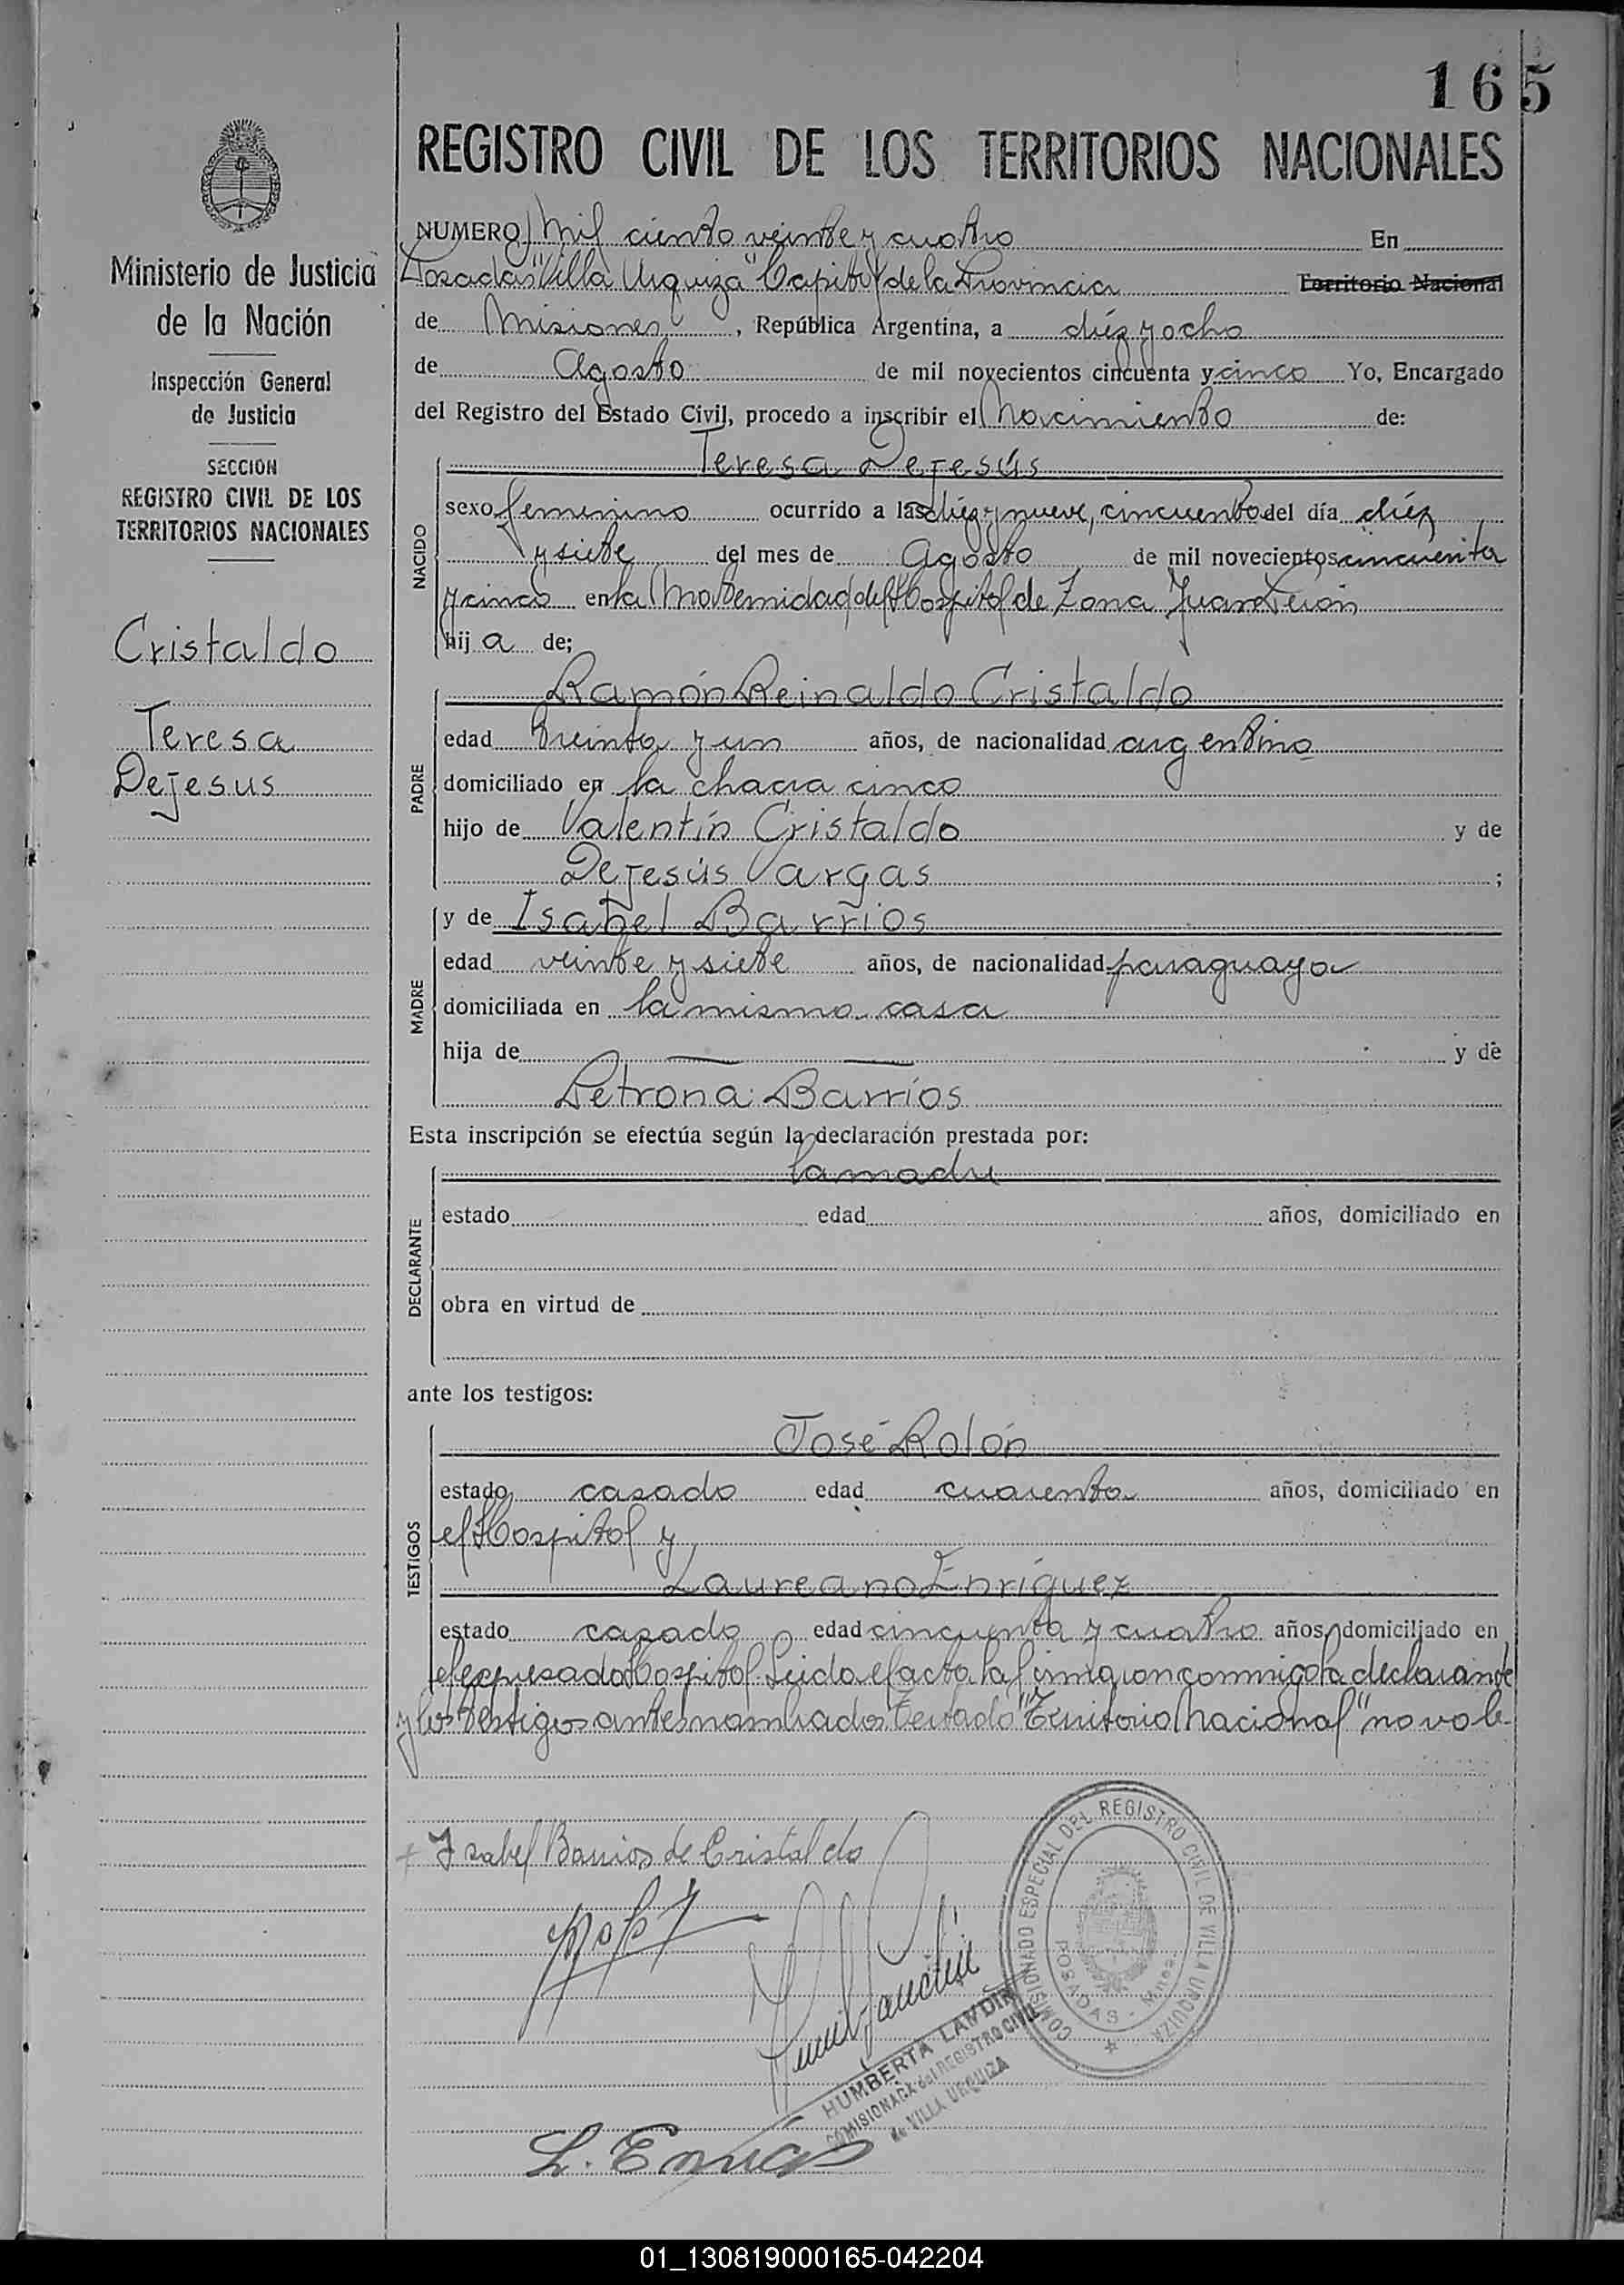 165
REGISTRO CIVIL DE LOS TERRITORIOS NACIONALES
Ministerio de Justicia
de la Nación
Inspección General
de Justicia
SECCION
REGISTRO CIVIL DE LOS
TERRITORIOS NACIONALES
Cristaldo
Teresa
Dejesus
NUMERO Mil ciento veinte y cuatro En
Posadas "Villa Urquiza" Capital de la Provincia Territorio Nacional
de Misiones, República Argentina, a diéz y ocho
de Agosto de mil novecientos cincuenta y cinco Yo, Encargado
del Registro del Estado Civil, procedo a inscribir el Nacimiento de:
NACIDO
Teresa Dejesús
sexo femenino ocurrido a las diéz y nueve, cincuenta del día diéz
y siete del mes de Agosto de mil novecientos cincuenta
y cinco en la Maternidad del Hospital de Zona Juan Perón
hij a de;
PADRE
Ramón Reinaldo Cristaldo
edad treinta y un años, de nacionalidad argentina
domiciliado en la chacra cinco
hijo de Valentín Cristaldo y de
Dejesús Vargas ;
MADRE
y de Isabel Barrios
edad veinte y siete años, de nacionalidad paraguaya
domiciliada en la misma casa
hija de — — y de
Petrona Barrios
Esta inscripción se efectúa según la declaración prestada por:
DECLARANTE
la madre
estado edad años, domiciliado en
obra en virtud de
ante los testigos:
TESTIGOS
José Rolón
estado casado edad cuarenta años, domiciliado en
el Hospital y
Laureano Enríquez
estado casado edad cincuenta y cuatro años, domiciliado en
el expresado Hospital. Leida el acta la firmaron conmigo la declarante
y los testigos antes nombrados Testado "Territorio Nacional" no vale-
+ Isabel Barrios de Cristaldo
COMISIONADO ESPECIAL DEL REGISTRO CIVIL DE VILLA URQUIZA
POSADAS - Mnes.
HUMBERTA LANDINI
COMISIONADA del REGISTRO CIVIL
de VILLA URQUIZA
01_130819000165-042204